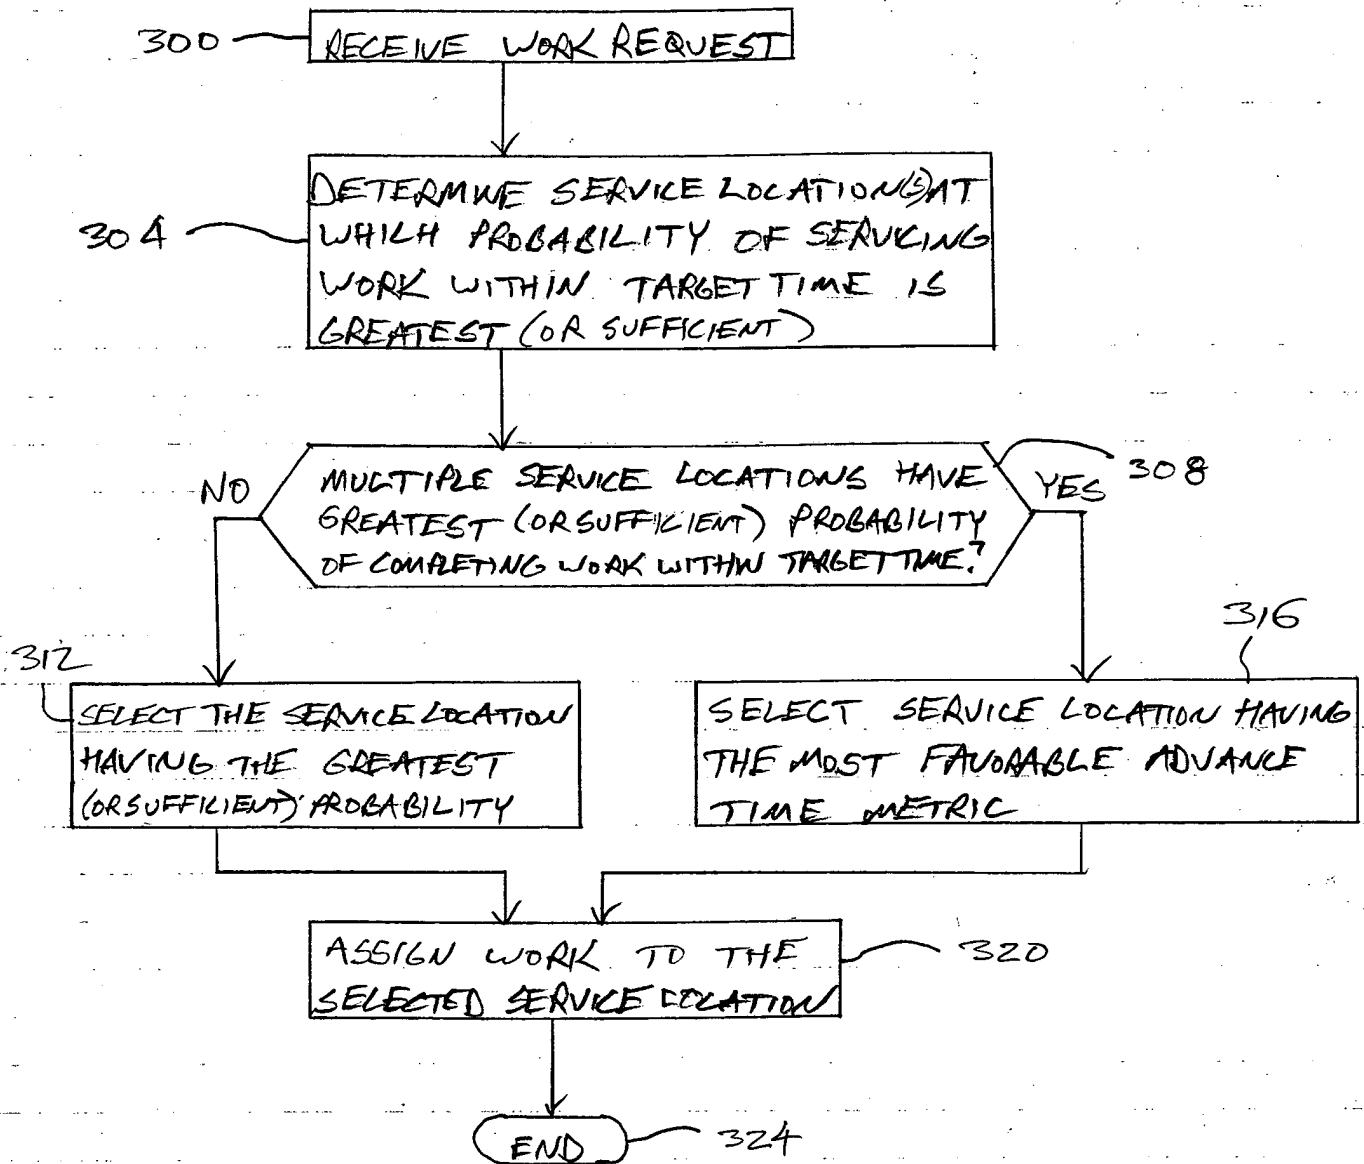 300
RECEIVE WORK REQUEST
304
DETERMINE SERVICE LOCATION(S) AT
WHICH PROBABILITY OF SERVICING
WORK WITHIN TARGET TIME IS
GREATEST (OR SUFFICIENT)
308
NO
MULTIPLE SERVICE LOCATIONS HAVE
GREATEST (OR SUFFICIENT) PROBABILITY
OF COMPLETING WORK WITHIN TARGET TIME?
YES
312
SELECT THE SERVICE LOCATION
HAVING THE GREATEST
(OR SUFFICIENT) PROBABILITY
316
SELECT SERVICE LOCATION HAVING
THE MOST FAVORABLE ADVANCE
TIME METRIC
ASSIGN WORK TO THE
SELECTED SERVICE LOCATION
320
END
324